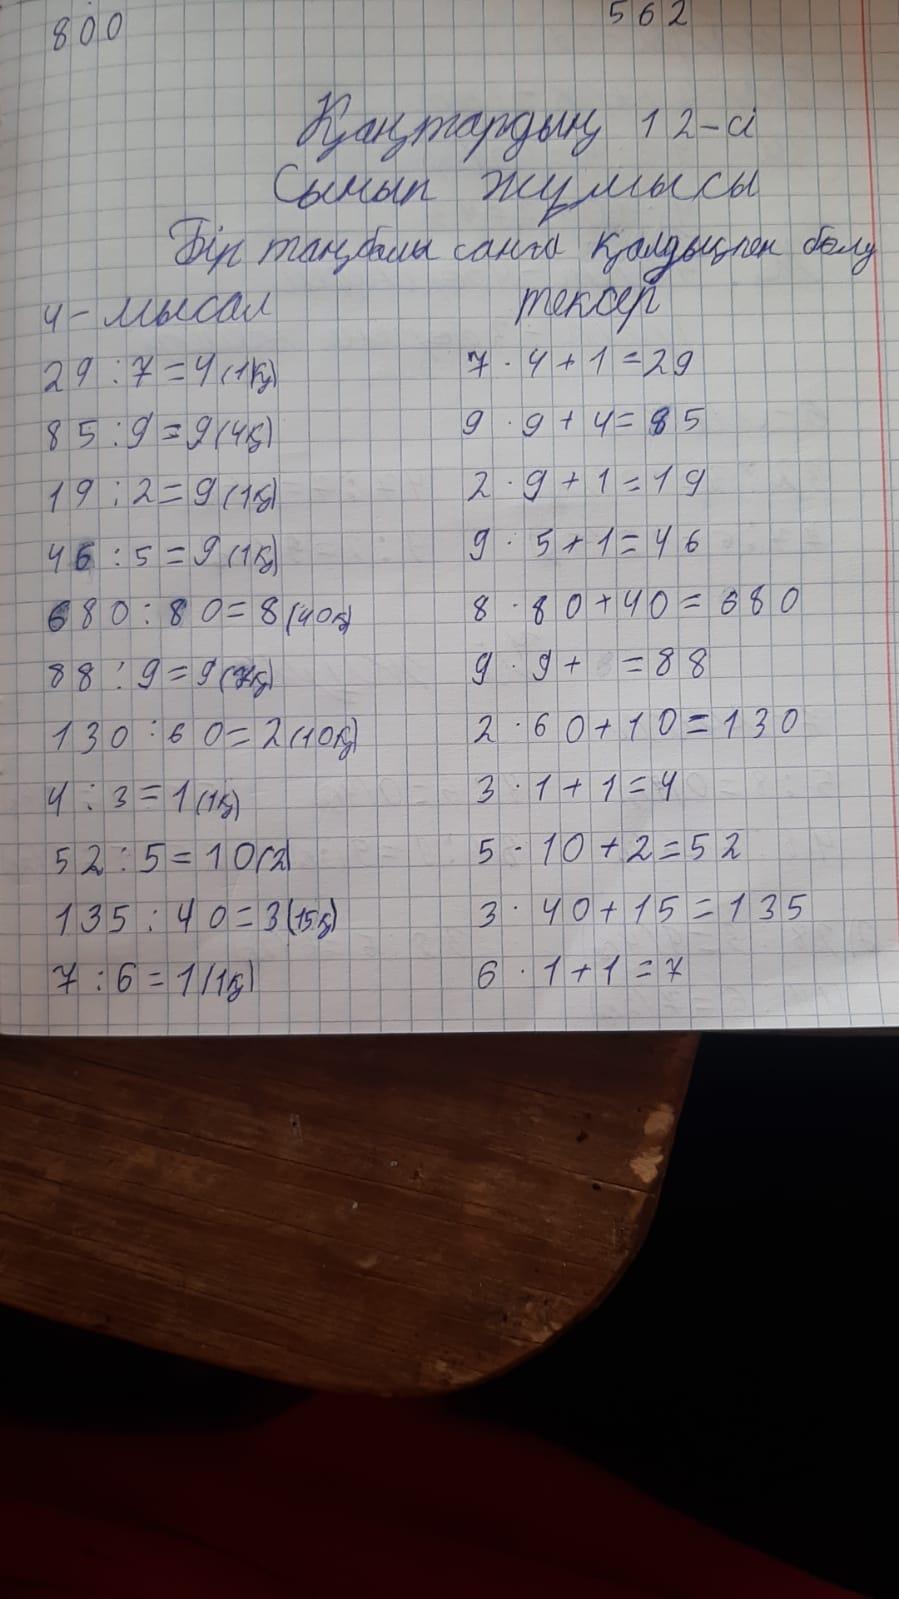 800 562
Қаңтардың 12-сі
Сынып жұмысы
Бір таңбалы санға қалдықпен бөлу
4-мысал тексер
29:7=4(1қ) 7·4+1=29
85:9=9(4қ) 9·9+4=85
19:2=9(1қ) 2·9+1=19
46:5=9(1қ) 9·5+1=46
680:80=8(40қ) 8·80+40=680
88:9=9(7қ) 9·9+ =88
130:60=2(10қ) 2·60+10=130
4:3=1(1қ) 3·1+1=4
52:5=10(2) 5·10+2=52
135:40=3(15қ) 3·40+15=135
7:6=1(1қ) 6·1+1=7